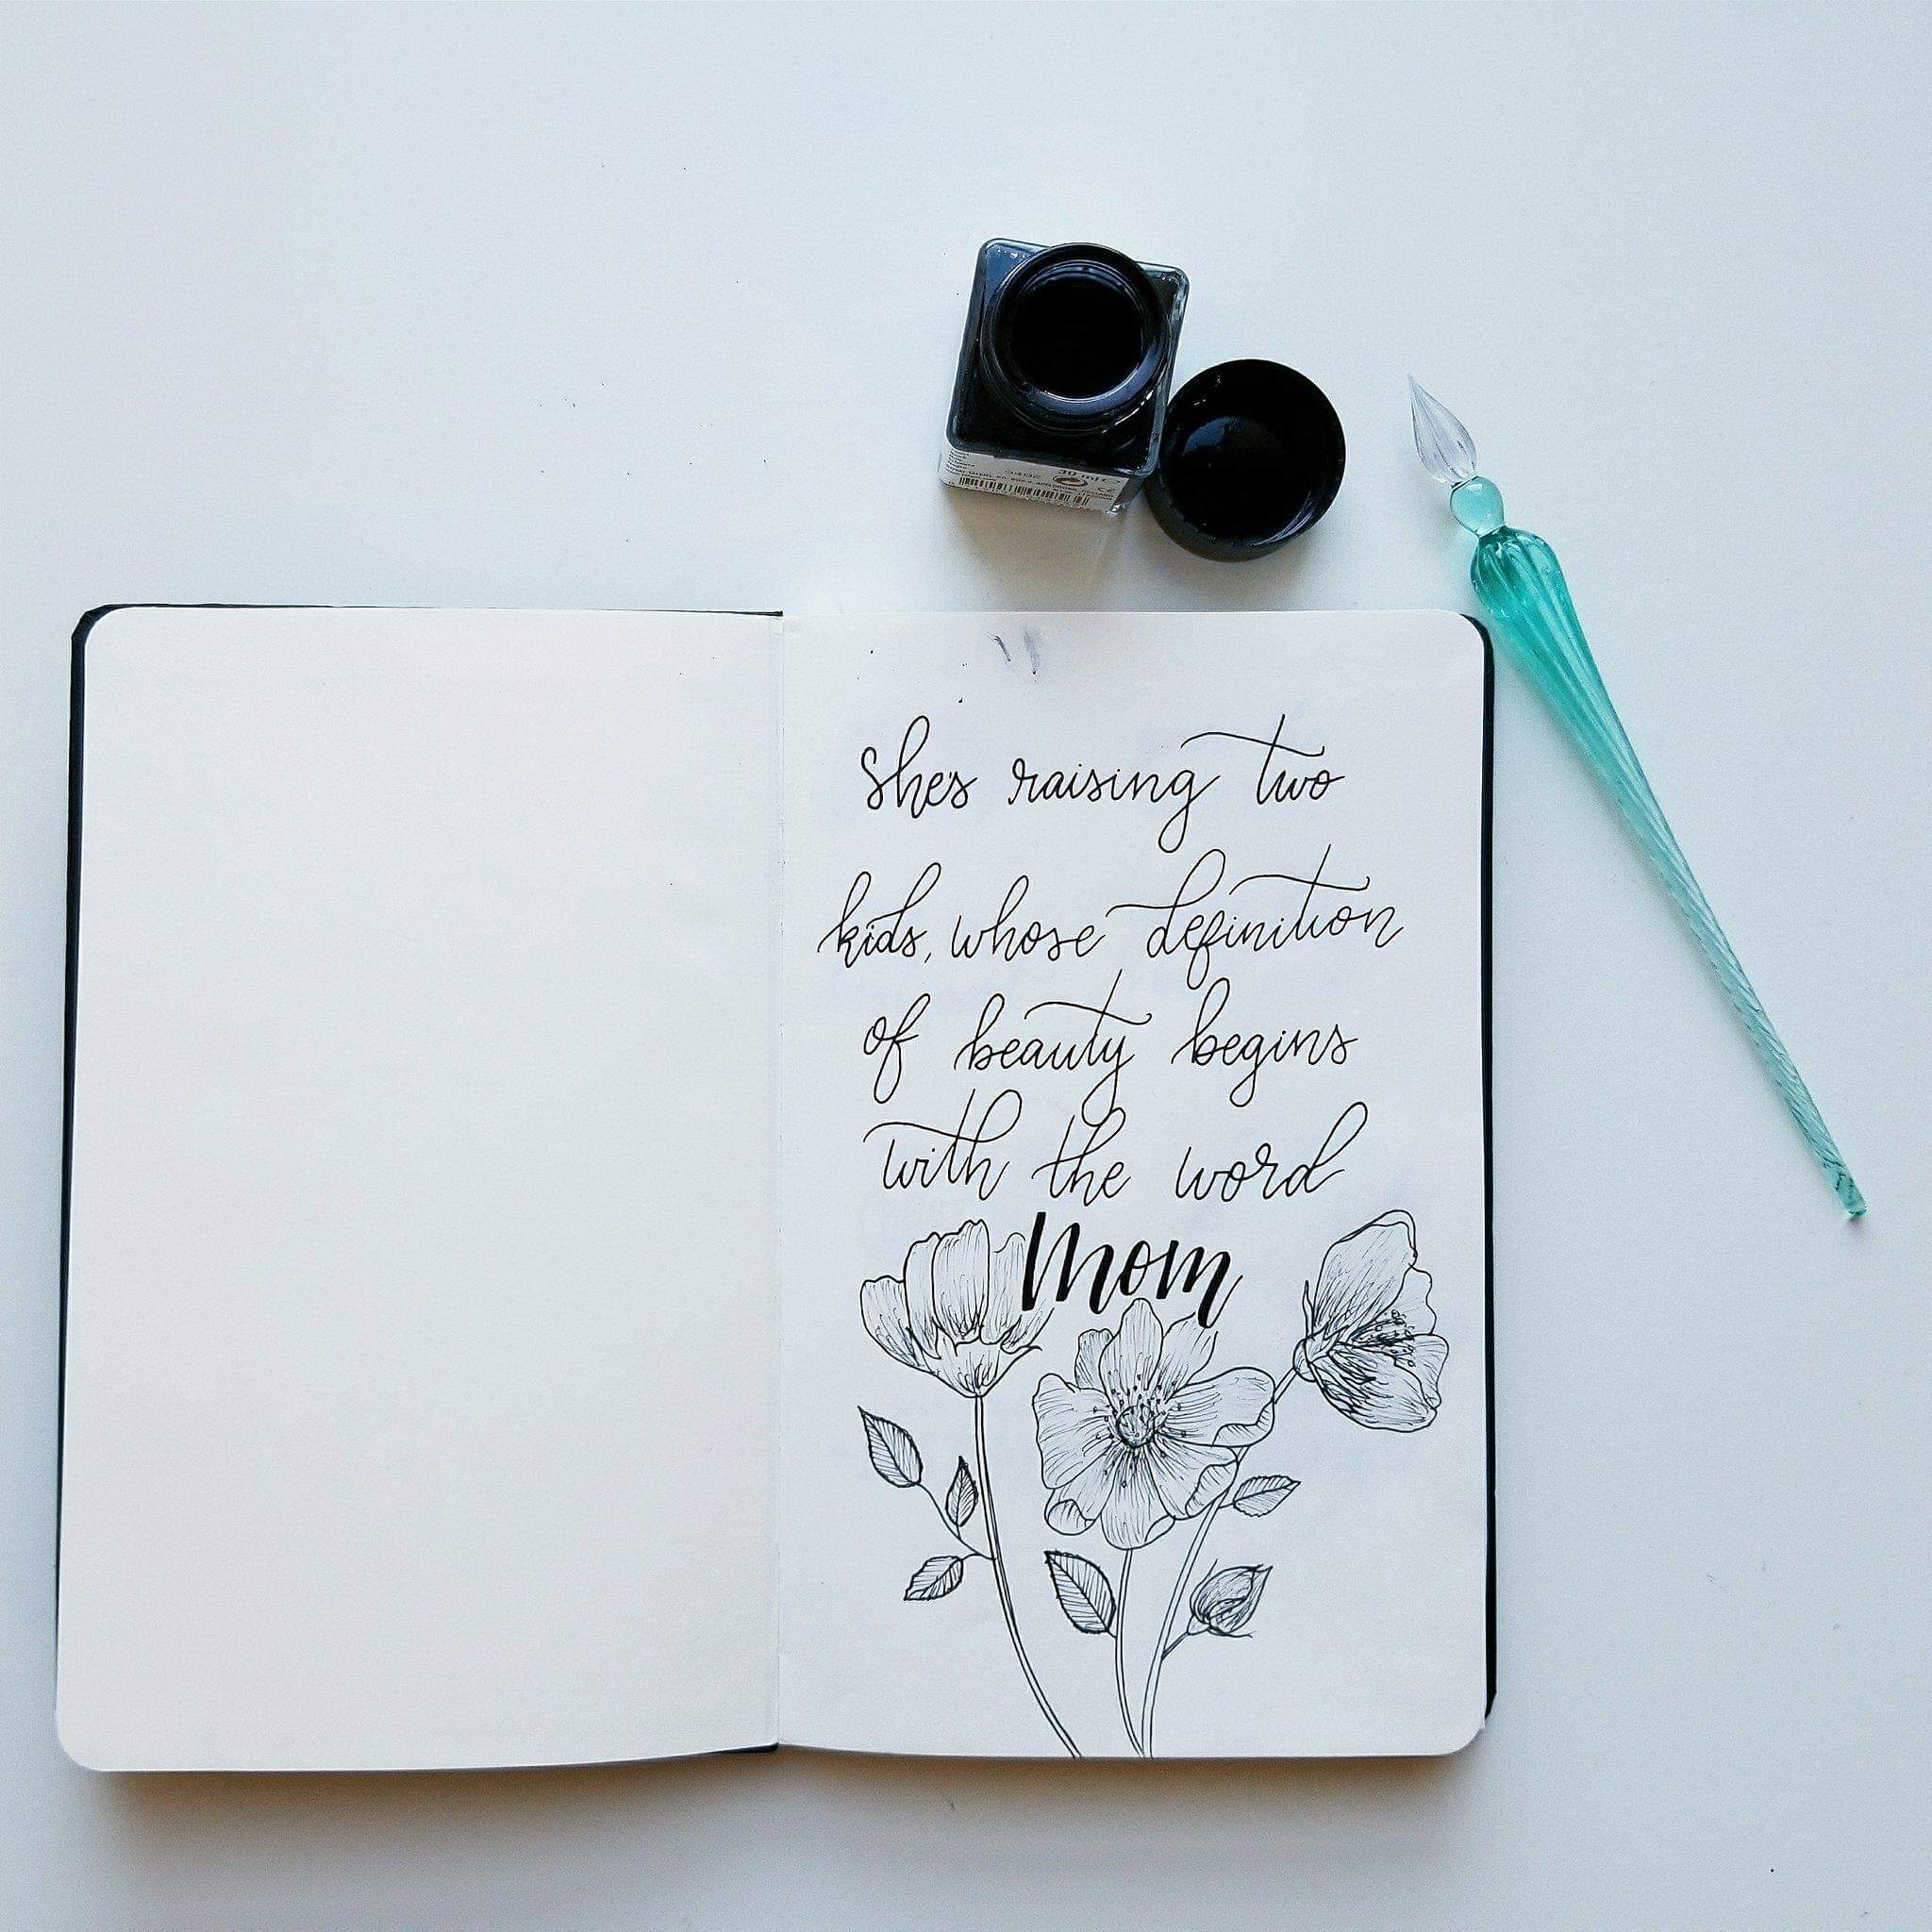 She's raising two
kids, whose definition
of beauty begins
with the word
Mom
30 ml